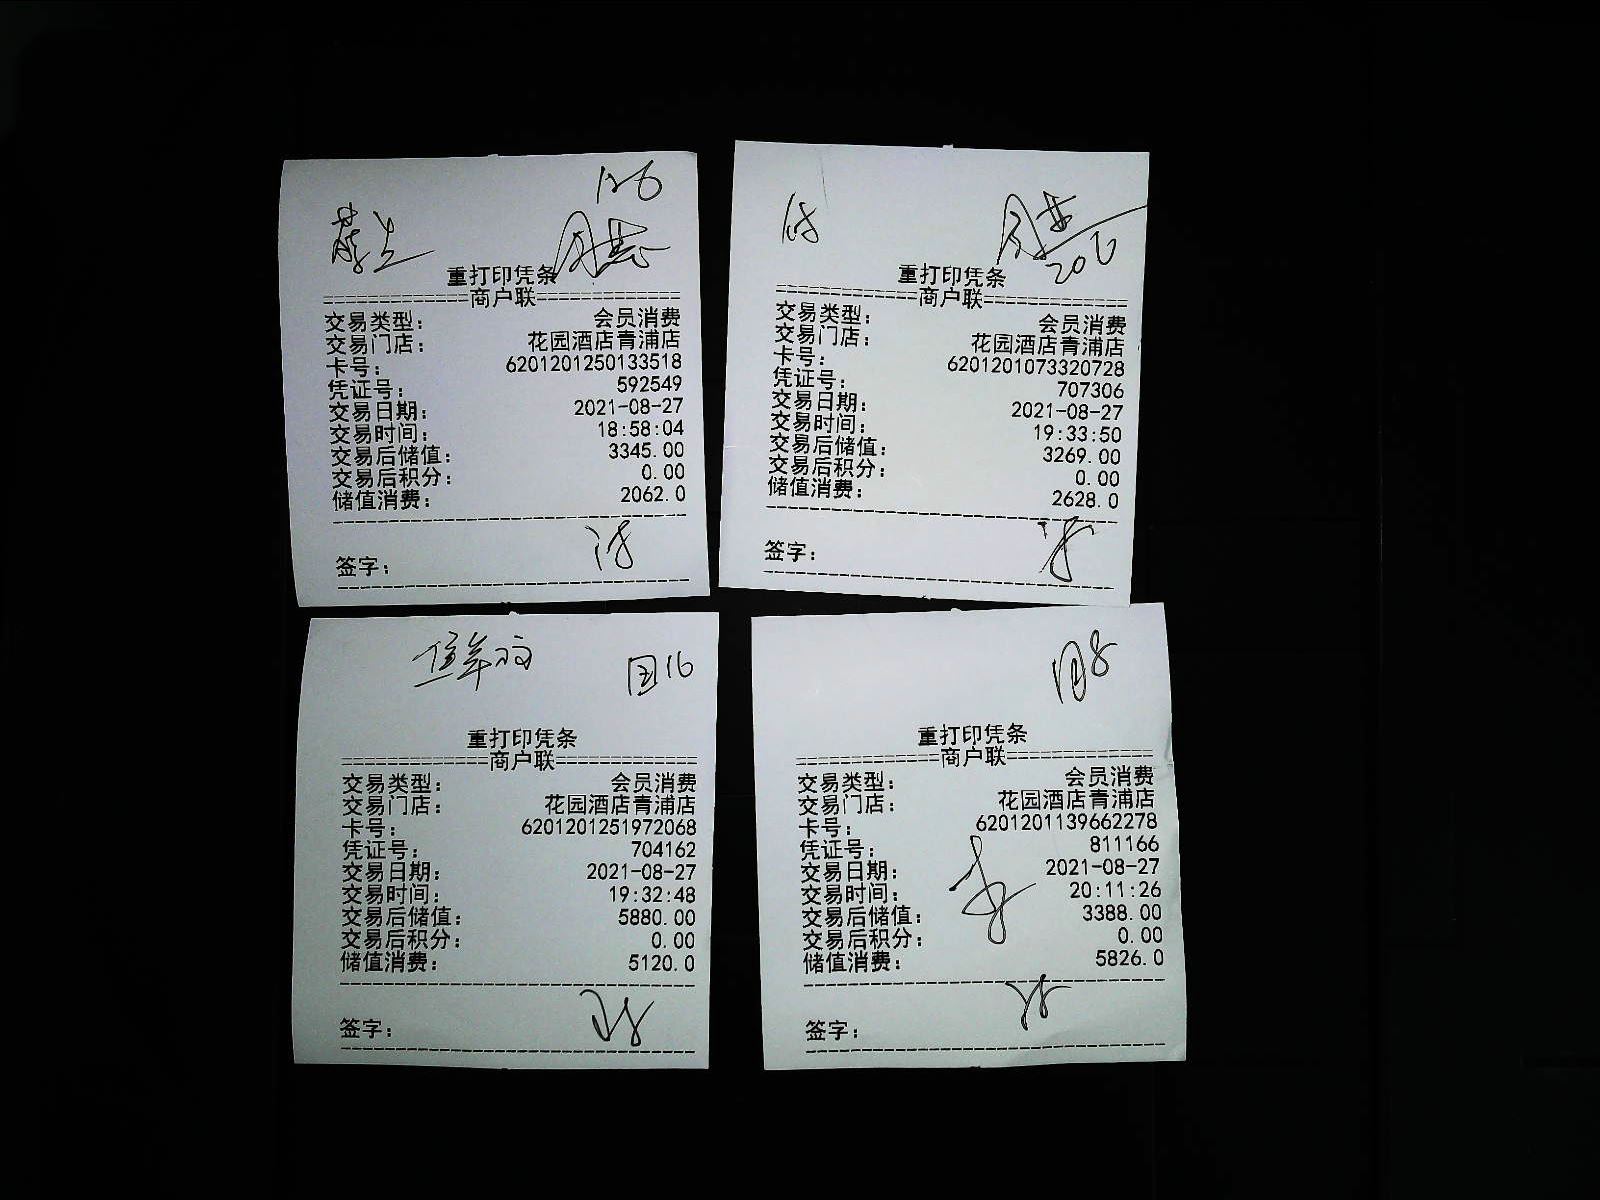 126
重打印凭条
商户联
交易类型： 会员消费
交易门店： 花园酒店青浦店
卡号： 6201201250133518
凭证号： 592549
交易日期： 2021-08-27
交易时间： 18:58:04
交易后储值： 3345.00
交易后积分： 0.00
储值消费： 2062.0
签字：
206
重打印凭条
商户联
交易类型： 会员消费
交易门店： 花园酒店青浦店
卡号： 6201201073320728
凭证号： 707306
交易日期： 2021-08-27
交易时间： 19:33:50
交易后储值： 3269.00
交易后积分： 0.00
储值消费： 2628.0
签字：
16
重打印凭条
商户联
交易类型： 会员消费
交易门店： 花园酒店青浦店
卡号： 6201201251972068
凭证号： 704162
交易日期： 2021-08-27
交易时间： 19:32:48
交易后储值： 5880.00
交易后积分： 0.00
储值消费： 5120.0
签字：
8
重打印凭条
商户联
交易类型： 会员消费
交易门店： 花园酒店青浦店
卡号： 6201201139662278
凭证号： 811166
交易日期： 2021-08-27
交易时间： 20:11:26
交易后储值： 3388.00
交易后积分： 0.00
储值消费： 5826.0
签字：